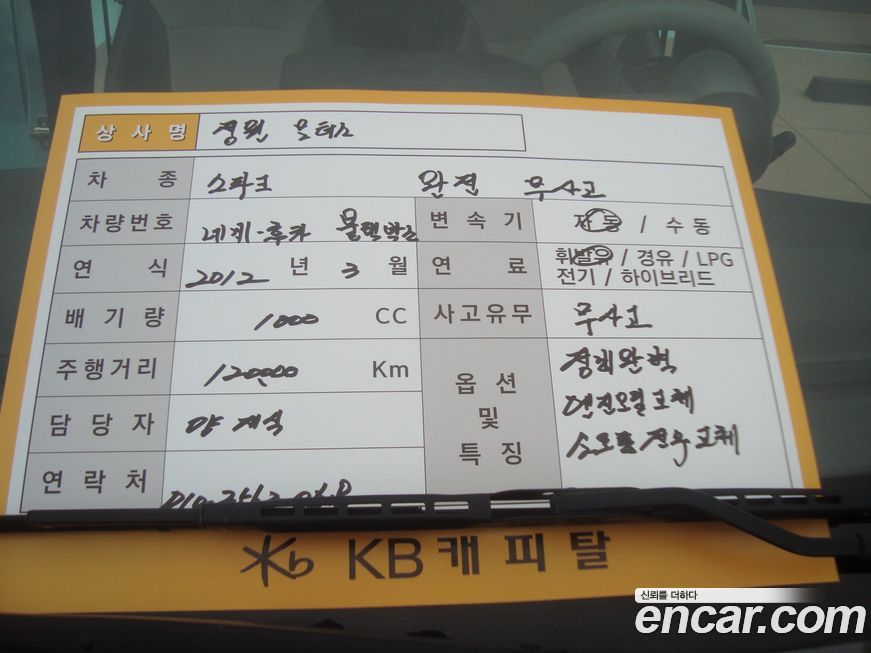 상사명 정원 모터스
차종 스파크 완전 무사고
차량번호 네비·후카 블랙박스 변속기 자동 / 수동
연식 2012 년 3 월 연료 휘발유 / 경유 / LPG
전기 / 하이브리드
배기량 1000 CC 사고유무 무사고
주행거리 120,000 Km 옵션 및 특징 정비완벽
담당자 양재식 엔진오일교체
연락처 소모품전부교체
KB KB캐피탈
신뢰를 더하다
encar.com